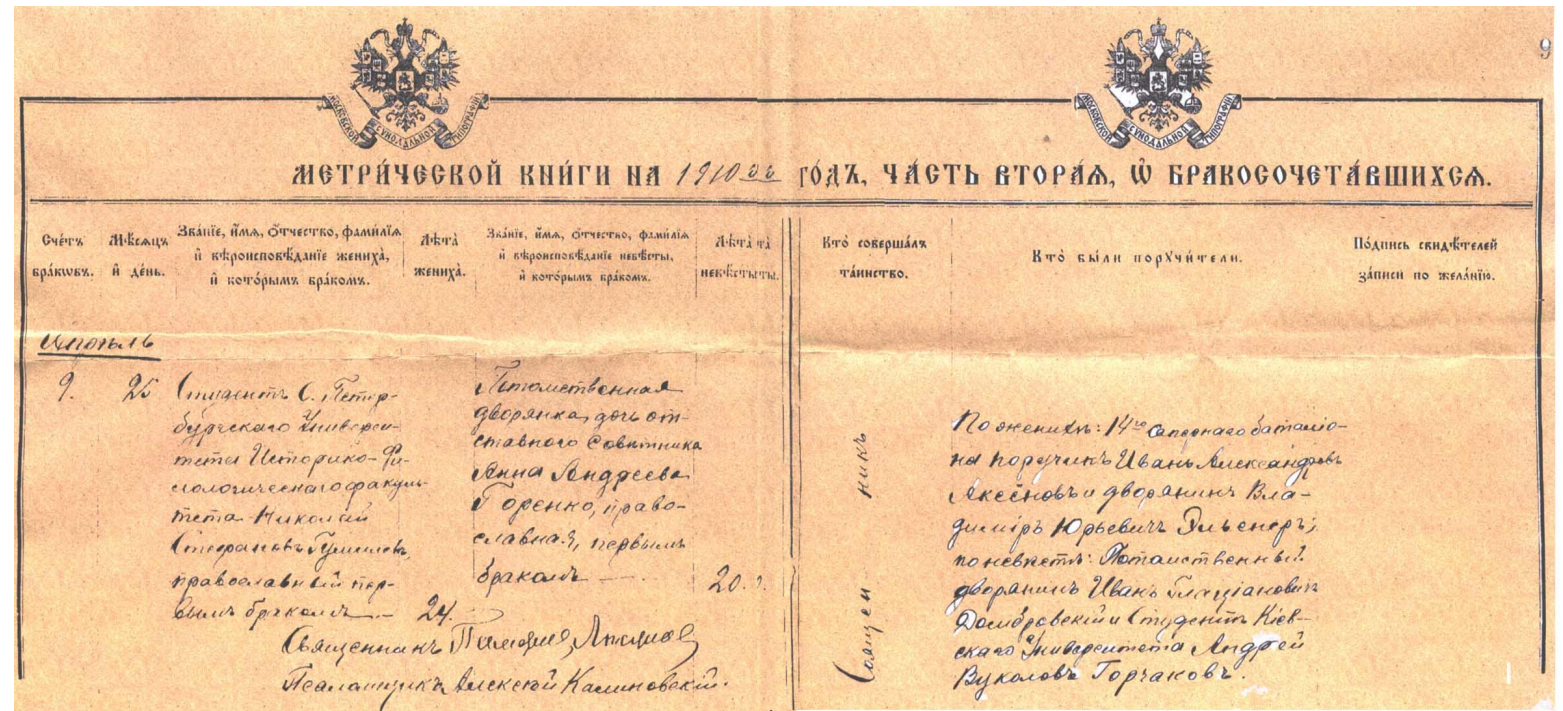 9
МОСКОВСКОЙ СѴНОДАЛЬНОЙ ТИПОГРАФІИ
МОСКОВСКОЙ СѴНОДАЛЬНОЙ ТИПОГРАФІИ
МЕТРИ́ЧЕСКОЙ КНИ́ГИ НА 1910й ГО́ДЪ, ЧА́СТЬ ВТОРА́Я, Ѡ БРАКОСОЧЕТА́ВШИХСЯ.
Сче́тъ
бра́кѡвъ.
Мѣ́сяцъ
и҆ де́нь.
Зва́нїе, и҆́мя, ѻ҆́тчество, фами́лїя
и҆ вѣроисповѣ́данїе жениха̀,
и҆ кото́рымъ бра́комъ.
Лѣ́та̀
жениха̀.
Зва́нїе, и҆́мя, ѻ҆́тчество, фами́лїя
и҆ вѣроисповѣ́данїе невѣ́сты,
и҆ кото́рымъ бра́комъ.
Лѣ́та̀ та̀
невѣ́стыты.
Кто̀ соверша́лъ
та́инство.
Кто̀ бы́ли порꙋчи́тели.
По́дпись свидѣ́телей
за́писи по жела́нїю.
Апрѣль
9.
25
Студентъ С. Петер-
бургскаго Универси-
тета Историко-Фи-
лологическаго факуль-
тета Николай
Стефановъ Гумилевъ,
православный пер-
вымъ бракомъ
24.
Потомственная
дворянка, дочь от-
ставного Советника
Анна Андреева
Горенко, право-
славная, первымъ
бракомъ
20.
Священникъ
По женихѣ: 14го Сапернаго баталіо-
на поручикъ Иванъ Александровъ
Аксёновъ и дворянинъ Вла-
диміръ Юрьевичъ Эльснеръ;
по невѣстѣ: Потомственный
дворянинъ Иванъ
Домбровскій и Студентъ Кіев-
скаго Университета Андрей
Вуколовъ Горчаковъ.
Священникъ
Псаломщикъ Алексѣй Калиновскій.